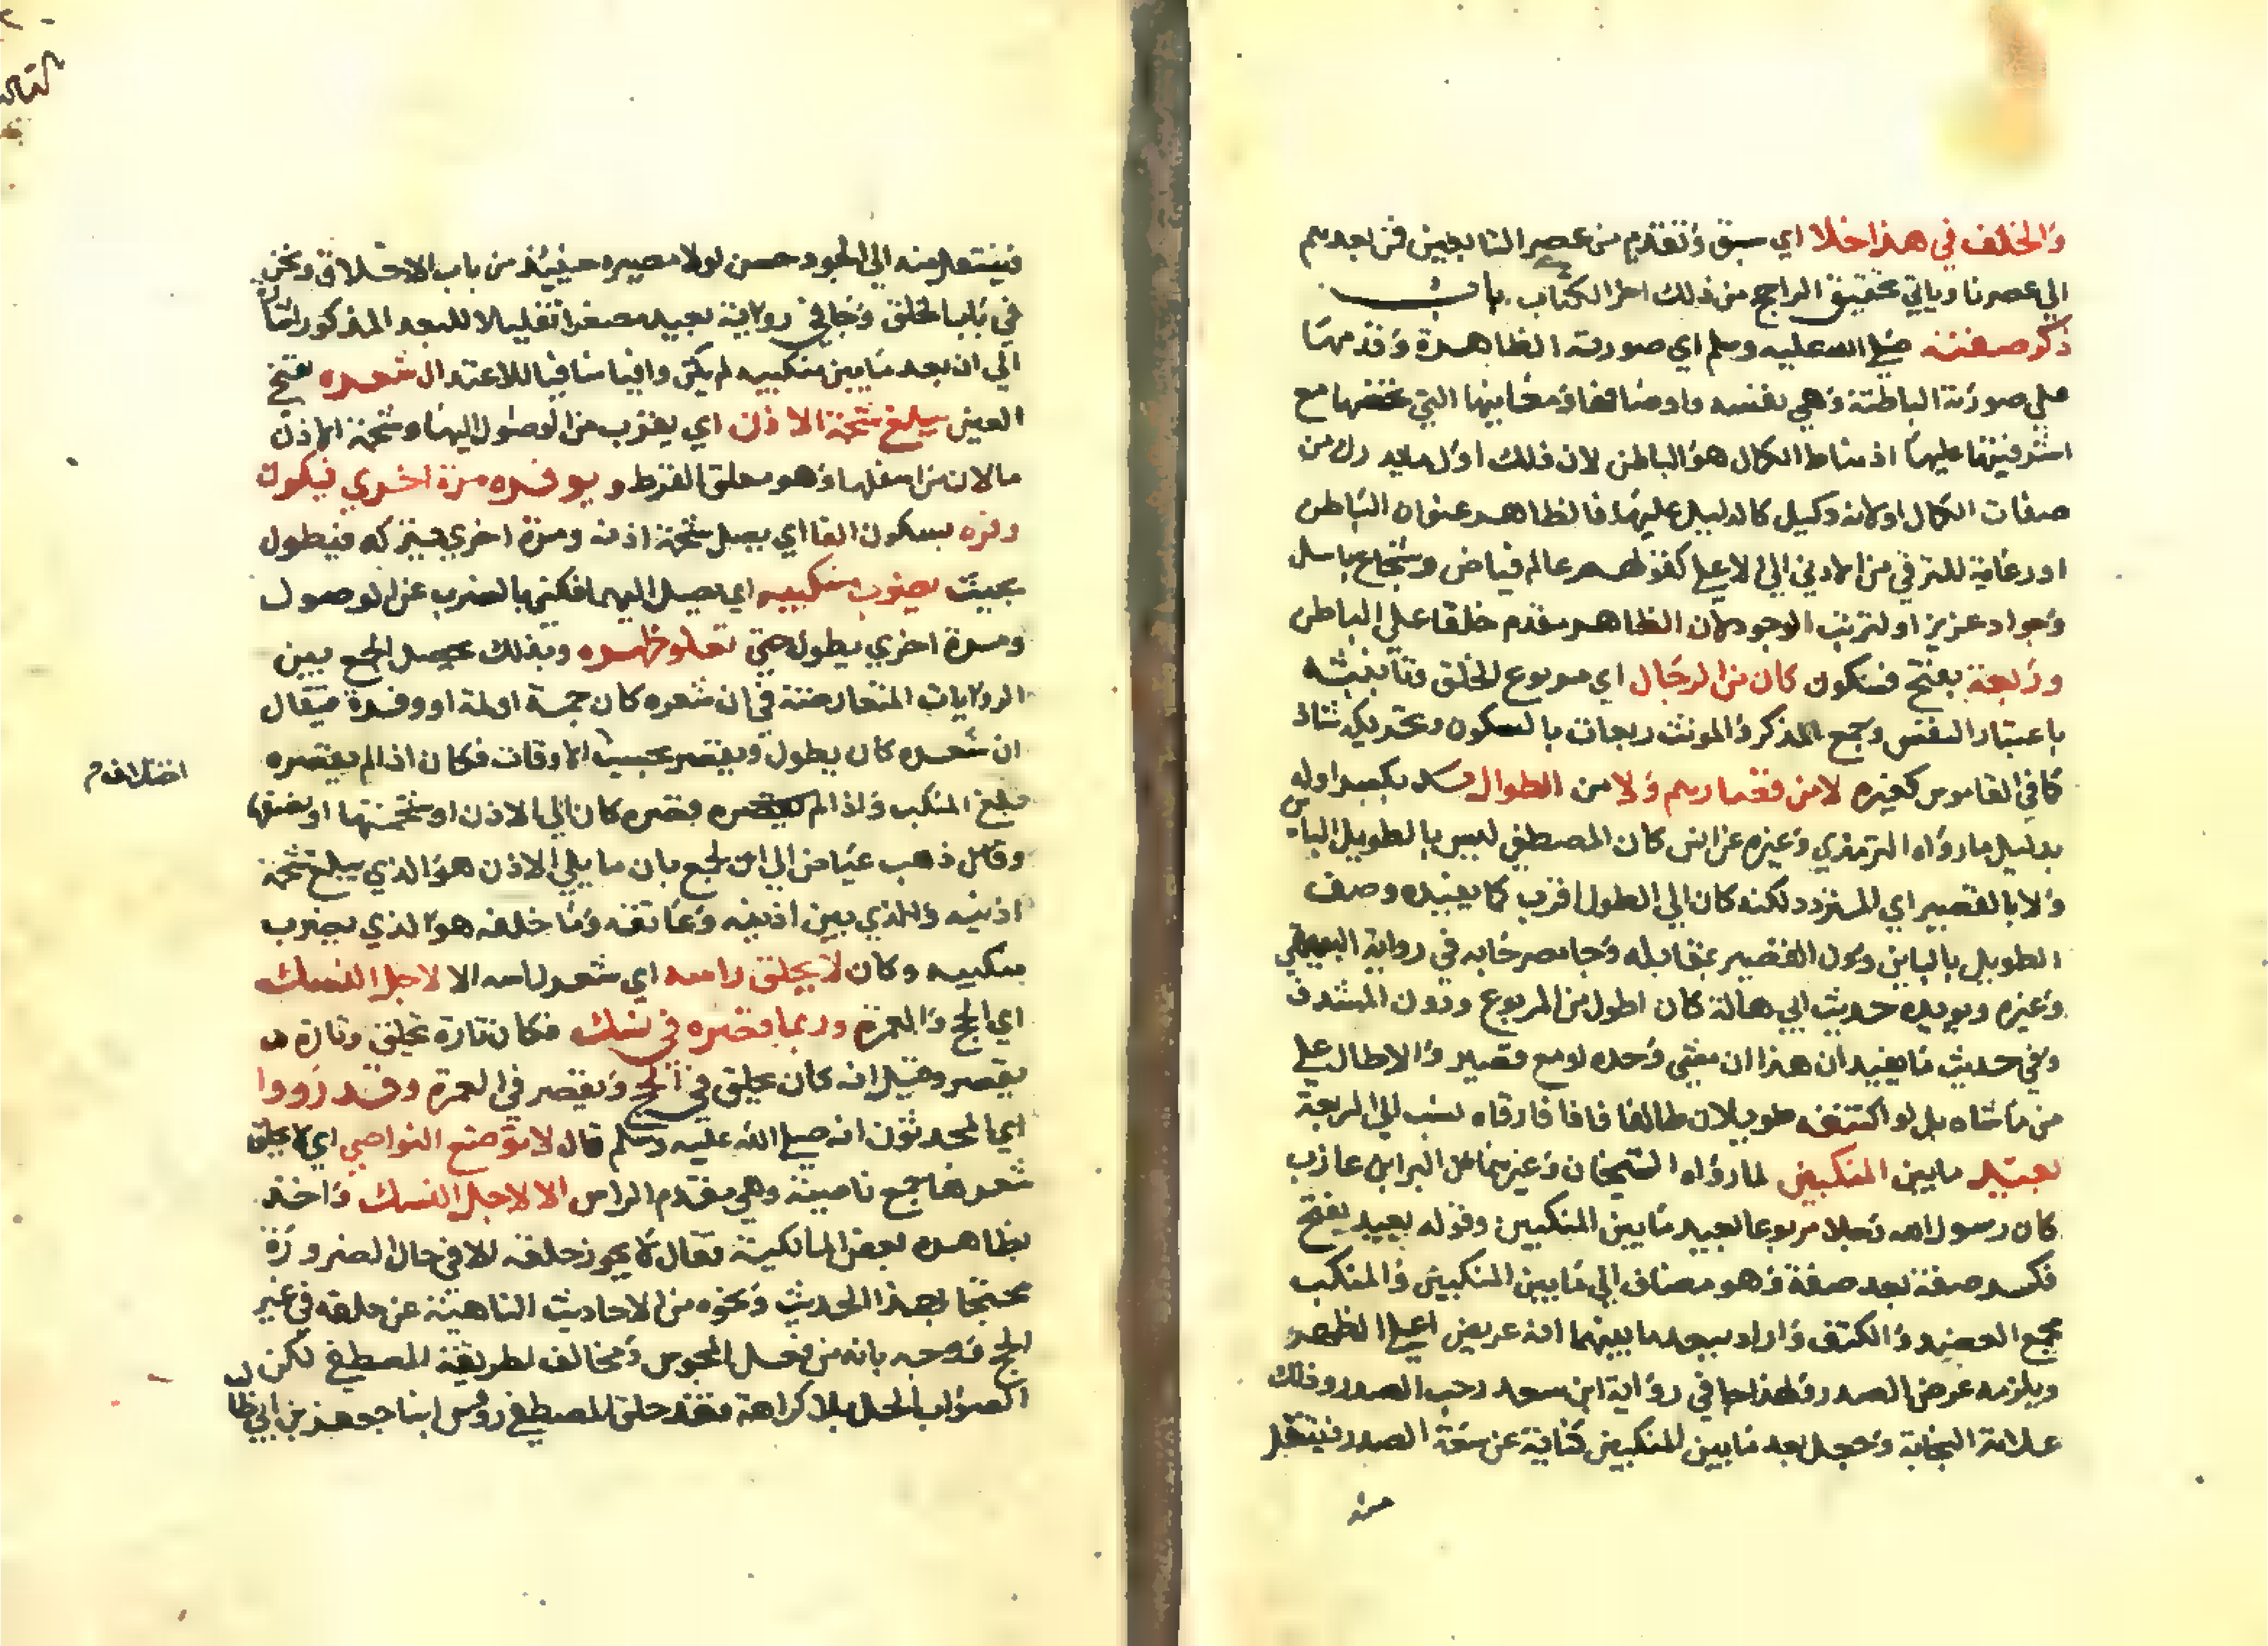 والخلف في هذا خلا اي سبق وتقدم من عصر التابعين فمن بعدهم
الي عصرنا وياتي تحقيق الراجح من ذلك اخر الكتاب باب
ذكر صفته صلي الله عليه وسلم اي صورته الظاهرة وقدمها
علي صورته الباطنة وهي نفسه واوصافها ومعانيها التي تخصها مع
اشرفيتها عليها اذ مناط الكمال هو الباطن لان ذلك اول مايدرك من
صفات الكمال اولانه وكيل كالدليل عليها فالظاهر عنوان الباطن
اورعاية للترقي من الادني الي الاعلي كقولهم عالم فياض وشجاع باسل
وجواد عزيز او لترتيب الوجود لان الظاهر مقدم خلقا علي الباطن
وربعة بفتح فسكون كان من الرجال اي مربوع الخلق وتانيثه
باعتبار النفس وجمع المذكر والمونث ربعات بالسكون وتحريكه شاذ
كما في القاموس كغيره لا من قصارهم ولا من الطوال بكسر اوله
بدليل مارواه الترمذي وغيره عن انس كان المصطفي ليس بالطويل الباين
ولا بالقصير اي المتردد لكنه كان الي الطول اقرب كما يفيده وصف
الطويل بالباين دون القصير بمقابله وجا مصرحا به في رواية البيهقي
وغيره ويويده حديث ابي هالة كان اطول من المربوع ودون المشذب
وفي حديث ما يفيد ان هذا ان مشي وحده لومع قصير والا طال علي
من ماشاه بل لو اكتنفه طويلان طالهما فاذا فارقاه نسب الي الربعة
بعيد مابين المنكبين لمارواه الشيخان وغيرهما عن البرا بن عازب
كان رسول الله رجلا مربوعا بعيد مابين المنكبين وقوله بعيد بفتح
فكسر صفة بعد صفة وهو مضاف الي مابين المنكبين والمنكب
مجمع العضد والكتف واراد ببعد مابينهما انه عريض اعلي الظهر
ويلزمه عرض الصدر ولهذا جا في رواية ابن سعد رحب الصدر وذلك
علامة النجابة وجعل بعد مابين المنكبين كناية عن سعة الصدر فينتقل
منه
فينتقل منه الي الجود حسن لولا مصيره حينيذ من باب الاخلاق ونحن
في باب الخلق وجا في رواية بعيد مصغرا تقليلا للبعد المذكور ايما
الي ان بعد مابين منكبيه لم يكن وافيا منافيا للاعتدال شعره بفتح
العين يبلغ شحمة الاذن اي يقرب من الوصول اليها وشحمة الاذن
مالان من اسفلها وهو معلق القرط ويوفره مرة اخري فيكون
وفره بسكون الفا اي يصل شحمة اذنه ومرة اخري يتركه فيطول
بحيث يضرب منكبيه اي يصل اليهما فكني بالضرب عن الوصول
ومرة اخري يطول حتي تعلو ظهره وبذلك يحصل الجمع بين
الروايات المتعارضة في ان شعره كان جمة اولمة اووفرة فيقال
ان شعره كان يطول ويقصر بحسب الاوقات فكان اذالم يقصره
اختلاف م
بلغ المنكب واذالم قصره كان الي الاذن او شحمتها اونصفها
وقد ذهب عياض الي ان الجمع بان مايلي الاذن هو الذي يبلغ شحمة
اذنيه والذي بين اذنيه وعاتقه وما خلفه هو الذي يضرب
منكبيه وكان لا يحلق راسه اي شعر راسه الا لاجل النسك
اي الحج والعمرة وربما قصره في نسك فكان تارة يحلق وتارة
يقصر وقيل انه كان يحلق في الحج ويقصر في العمرة وقد رووا
اي المحدثون انه صلي الله عليه وسلم قال لا توضع النواصي اي لا يحلق
شعرها جمع ناصية وهي مقدم الراس الا لاجل النسك واخذ
بظاهره بعض المالكية فقال لا يجوز حلقه الا في حال الضرورة
محتجا بهذا الحديث ونحوه من الاحاديث الناهية عن حلقه في غير
الحج ووجه بانه من فعل المجوس ومخالف لطريقة المصطفي لكن
الصواب الحل بلا كراهة فقد حلق المصطفي روس ابنا جعفر بن ابي طالب